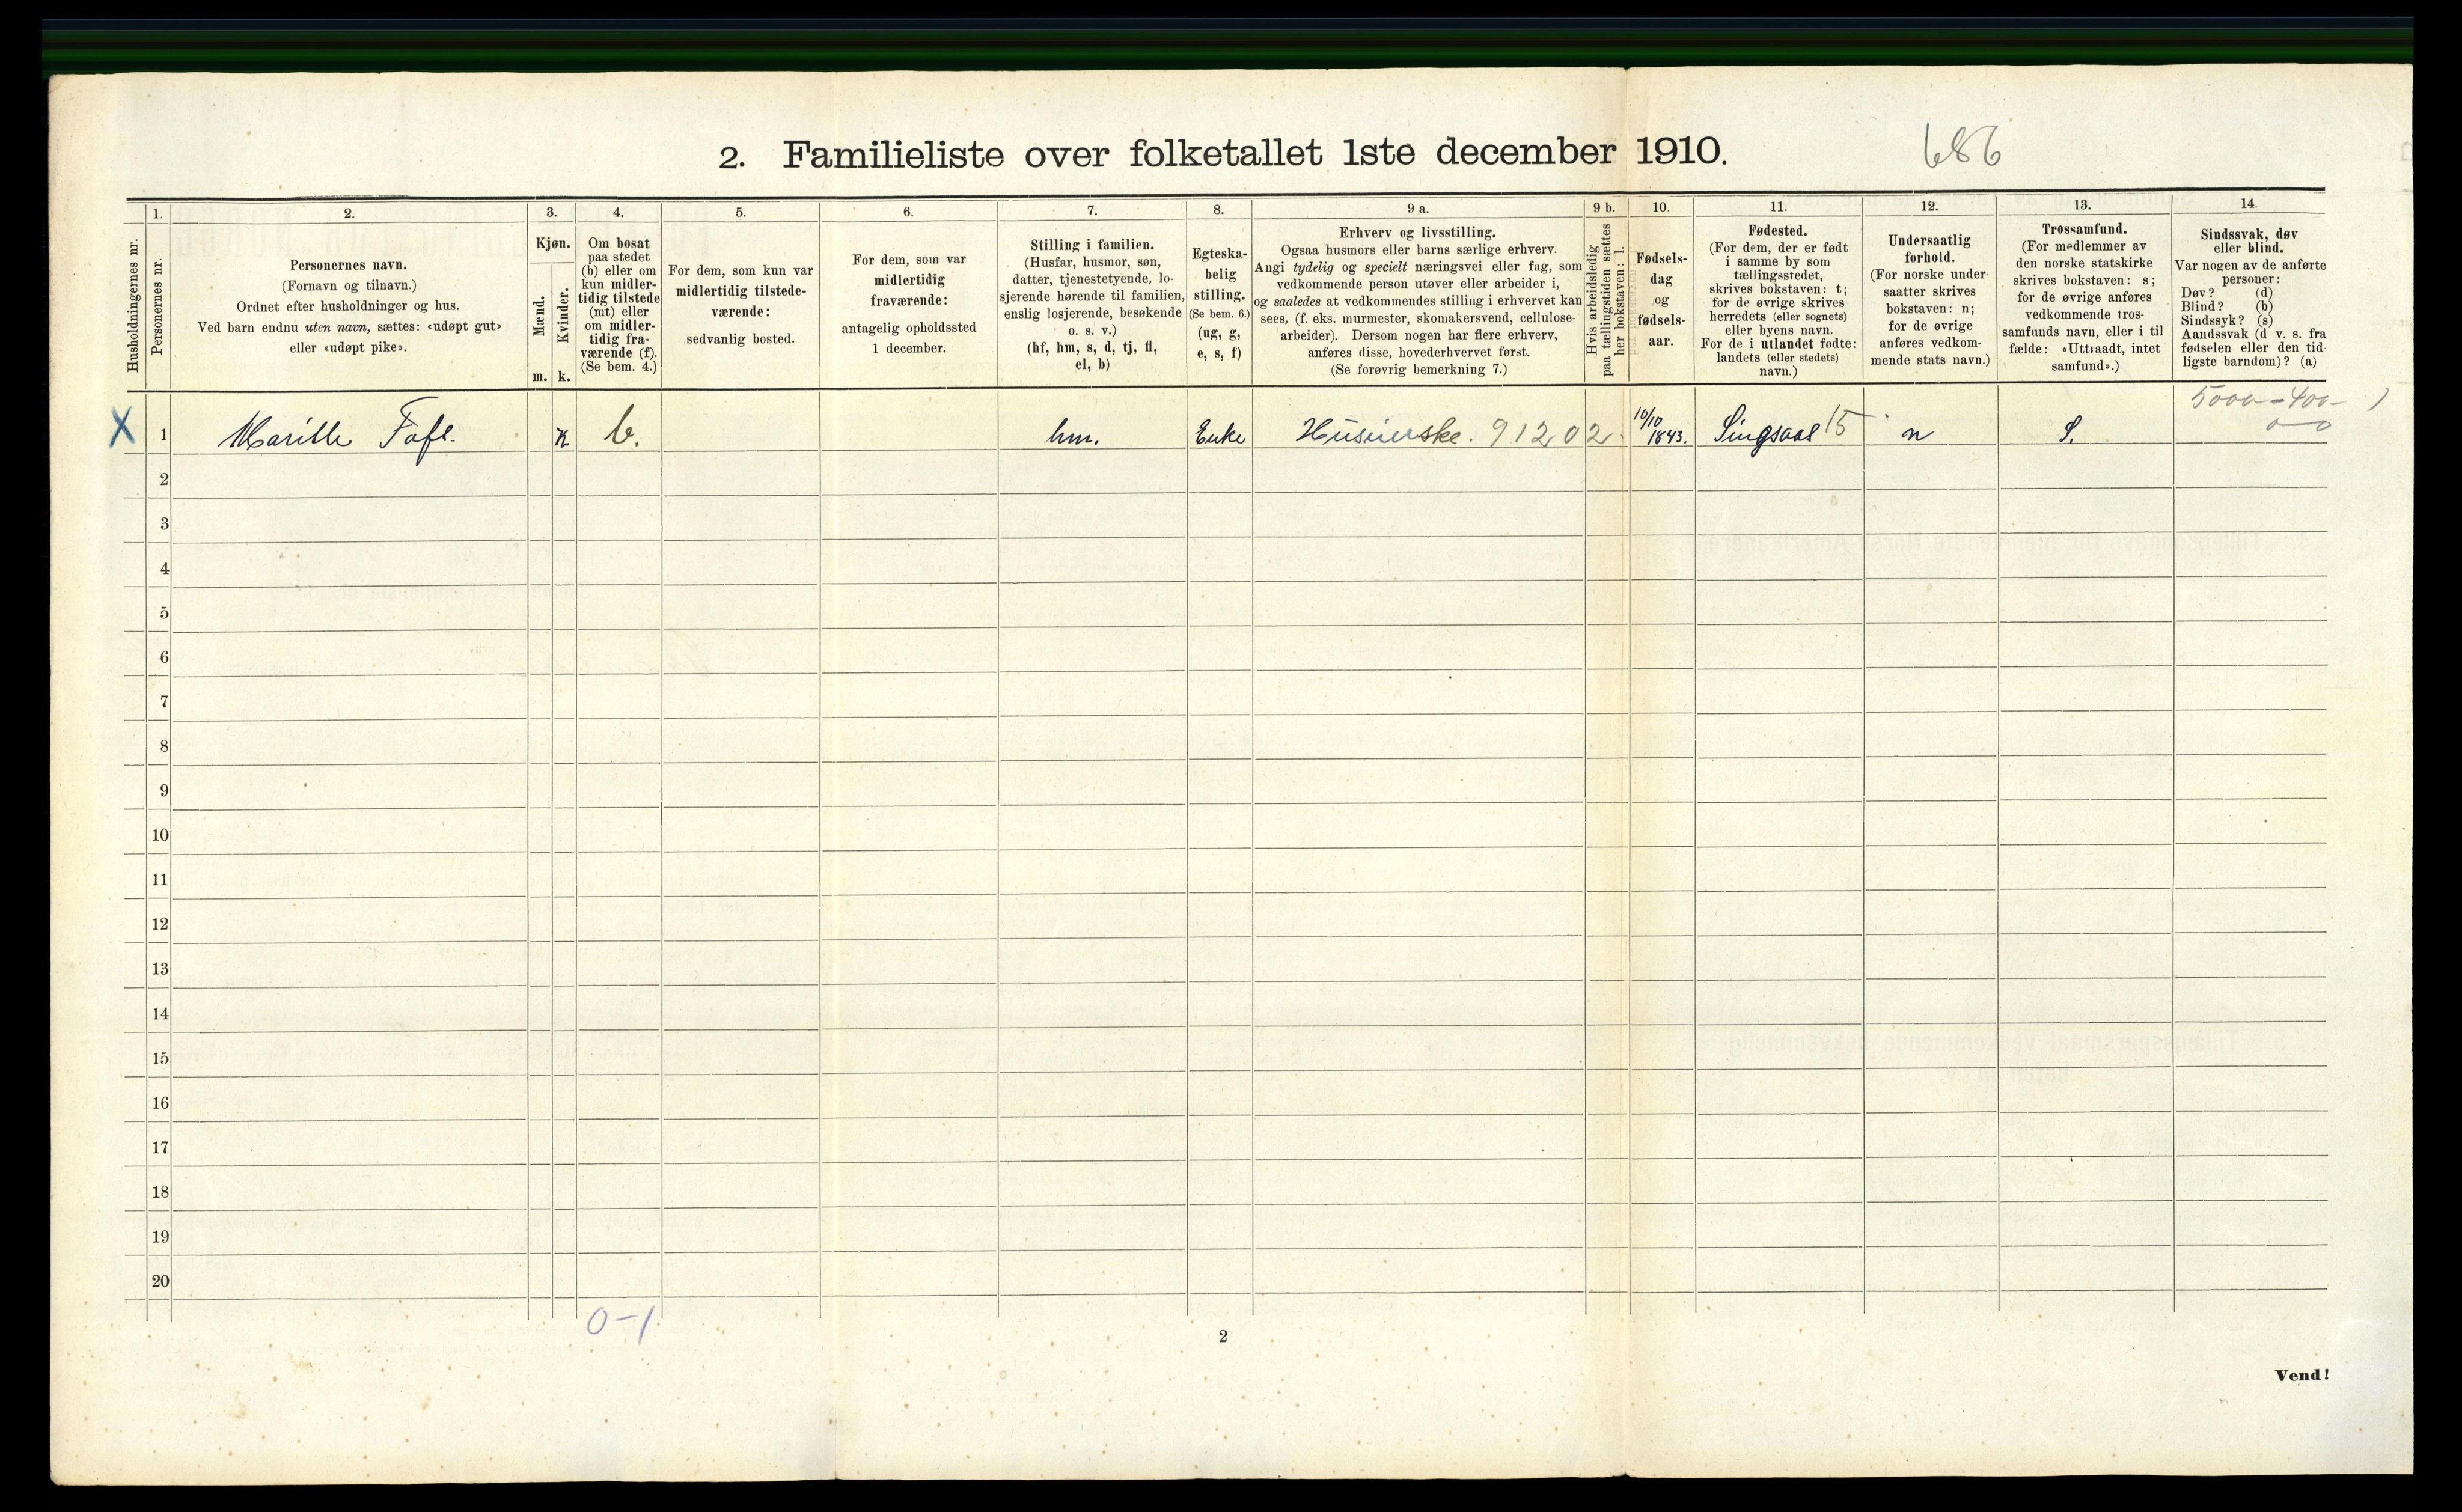 2. Familieliste over folketallet 1ste december 1910.
686
Husholdningernes nr.
1.
Personernes nr.
2.
Personernes navn.
(Fornavn og tilnavn.)
Ordnet efter husholdninger og hus.
Ved barn endnu uten navn, sættes: «udøpt gut»
eller «udøpt pike».
3.
Kjøn.
Mænd.
m.
Kvinder.
k.
4.
Om bosat
paa stedet
(b) eller om
kun midler-
tidig tilstede
(mt) eller
om midler-
tidig fra-
værende (f).
(Se bem. 4.)
5.
For dem, som kun var
midlertidig tilstede-
værende:
sedvanlig bosted.
6.
For dem, som var
midlertidig
fraværende:
antagelig opholdssted
1 december.
7.
Stilling i familien.
(Husfar, husmor, søn,
datter, tjenestetyende, lo-
sjerende hørende til familien,
enslig losjerende, besøkende
o. s. v.)
(hf, hm, s, d, tj, fl,
el, b)
8.
Egteska-
belig
stilling.
(Se bem. 6.)
(ug, g,
e, s, f)
9 a.
Erhverv og livsstilling.
Ogsaa husmors eller barns særlige erhverv.
Angi tydelig og specielt næringsvei eller fag, som
vedkommende person utøver eller arbeider i,
og saaledes at vedkommendes stilling i erhvervet kan
sees, (f. eks. murmester, skomakersvend, cellulose-
arbeider). Dersom nogen har flere erhverv,
anføres disse, hovederhvervet først.
(Se forøvrig bemerkning 7.)
9 b.
Hvis arbeidsledig
paa tællingstiden sættes
her bokstaven: l.
10.
Fødsels-
dag
og
fødsels-
aar.
11.
Fødested.
(For dem, der er født
i samme by som
tællingsstedet,
skrives bokstaven: t;
for de øvrige skrives
herredets (eller sognets)
eller byens navn.
For de i utlandet fødte:
landets (eller stedets)
navn.)
12.
Undersaatlig
forhold.
(For norske under-
saatter skrives
bokstaven: n;
for de øvrige
anføres vedkom-
mende stats navn.)
13.
Trossamfund.
(For medlemmer av
den norske statskirke
skrives bokstaven: s;
for de øvrige anføres
vedkommende tros-
samfunds navn, eller i til
fælde: «Uttraadt, intet
samfund».)
14.
Sindssvak, døv
eller blind.
Var nogen av de anførte
personer:
Døv? (d)
Blind? (b)
Sindssyk? (s)
Aandssvak (d v. s. fra
fødselen eller den tid-
ligste barndom)? (a)
5000-400-
X 1 k b. hm. Enke 91202 10/10 1843. Singsaas 15 n S.
2
3
4
5
6
7
8
9
10
11
12
13
14
15
16
17
18
19
20
0-1
2
Vend!